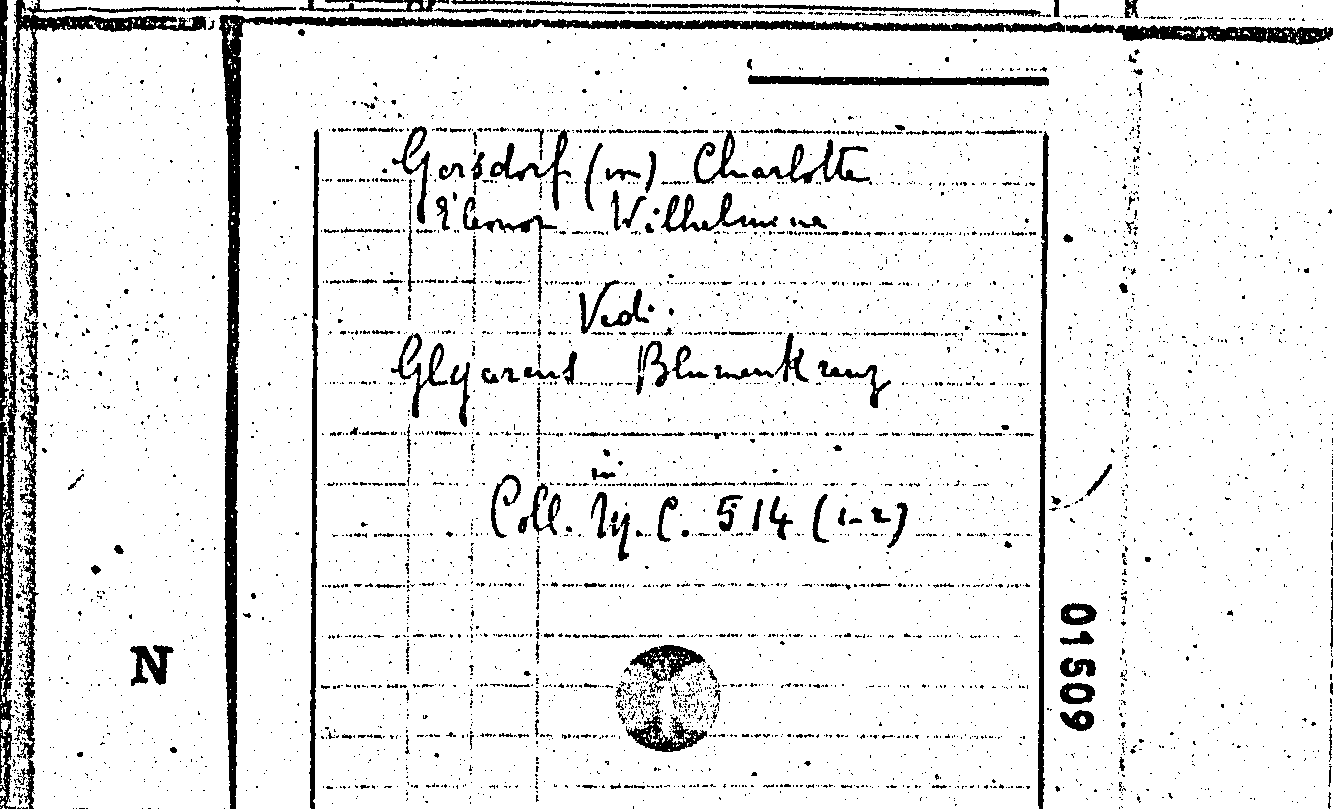 Gersdorf (von) Charlotte
Eleonor Wilhelmine
Vedi:
Glycereus Blumenkranz
in
Coll. M.C. 514 (1-2)
01509
N